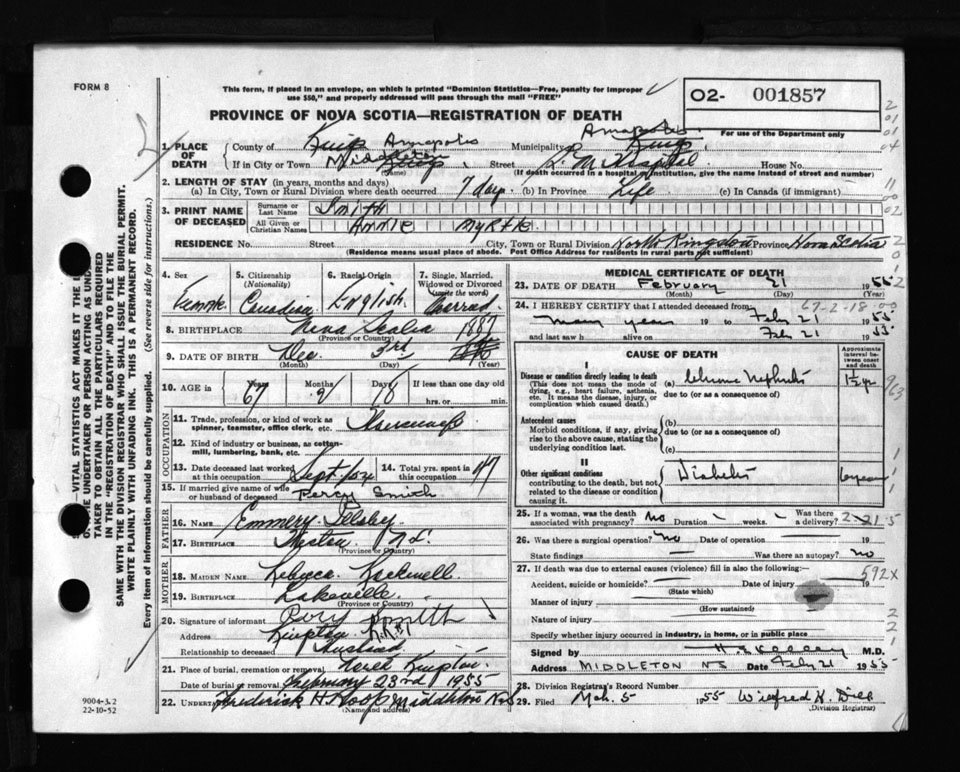 FORM 8
This form, if placed in an envelope, on which is printed "Dominion Statistics—Free, penalty for improper
use $50," and properly addressed will pass through the mail "FREE"
O2- 001857
For use of the Department only
PROVINCE OF NOVA SCOTIA—REGISTRATION OF DEATH
1. PLACE OF DEATH
County of Kings Annapolis Municipality Annapolis Kings
If in City or Town Middleton Street S. M. Hospital House No.
(Name) (If death occurred in a hospital or institution, give the name instead of street and number)
2. LENGTH OF STAY (in years, months and days)
(a) In City, Town or Rural Division where death occurred 7 days (b) In Province Life (c) In Canada (if immigrant)
3. PRINT NAME OF DECEASED
Surname or Last Name Smith
All Given or Christian Names Annie Myrtle
RESIDENCE No. Street City, Town or Rural Division North Kingston Province Nova Scotia
(Residence means usual place of abode. Post Office Address for residents in rural parts not sufficient)
4. Sex Female
5. Citizenship (Nationality) Canadian
6. Racial Origin English
7. Single, Married, Widowed or Divorced (write the word) Married
8. BIRTHPLACE Nova Scotia
(Province or Country)
9. DATE OF BIRTH Dec 3rd 1887
(Month) (Day) (Year)
10. AGE in Years 67 Months 2 Days 18 If less than one day old
hrs. or min.
OCCUPATION
11. Trade, profession, or kind of work as spinner, teamster, office clerk, etc. Housewife
12. Kind of industry or business, as cotton-mill, lumbering, bank, etc.
13. Date deceased last worked at this occupation Sept 1954
14. Total yrs. spent in this occupation 47
15. If married give name of wife or husband of deceased Percy Smith
FATHER
16. NAME Emmery
17. BIRTHPLACE
(Province or Country)
MOTHER
18. MAIDEN NAME Rebecca Rockwell
19. BIRTHPLACE Lakeville
(Province or Country)
20. Signature of informant Percy Smith
Address Kingston
Relationship to deceased Husband
21. Place of burial, cremation or removal North Kingston
Date of burial or removal February 23rd 1955
22. UNDERTAKER Frederick H. Roop Middleton N.S.
(Name and address)
MEDICAL CERTIFICATE OF DEATH
23. DATE OF DEATH February 21 1955
(Month) (Day)
67-2-18-00
24. I HEREBY CERTIFY that I attended deceased from
many years 19 to Feb 21 1955
and last saw h alive on Feb 21 1955
CAUSE OF DEATH
Approximate interval between onset and death
I
Disease or condition directly leading to death (a) Chronic Nephritis 1½ yr
(This does not mean the mode of dying, e.g., heart failure, asthenia, etc. It means the disease, injury, or complication which caused death.)
due to (or as a consequence of)
Antecedent causes
Morbid conditions, if any, giving rise to the above cause, stating the underlying condition last.
(b)
due to (or as a consequence of)
(c)
II
Other significant conditions contributing to the death, but not related to the disease or condition causing it.
Diabetes
25. If a woman, was the death associated with pregnancy? No Duration weeks. Was there a delivery?
26. Was there a surgical operation? no Date of operation 19
State findings Was there an autopsy? no
27. If death was due to external causes (violence) fill in also the following:—
592X
Accident, suicide or homicide? Date of injury 19
(State which)
Manner of injury
(How sustained)
Nature of injury
Specify whether injury occurred in industry, in home, or in public place
Signed by M.D.
Address MIDDLETON NS Date Feby 21 1955
28. Division Registrar's Record Number
29. Filed Mch. 5 1955
(Division Registrar)
SAME WITH THE DIVISION REGISTRAR WHO SHALL ISSUE THE BURIAL PERMIT.
WRITE PLAINLY WITH UNFADING INK. THIS IS A PERMANENT RECORD.
Every item of information should be carefully supplied. (See reverse side for instructions.)
9004-3.2
22-10-52